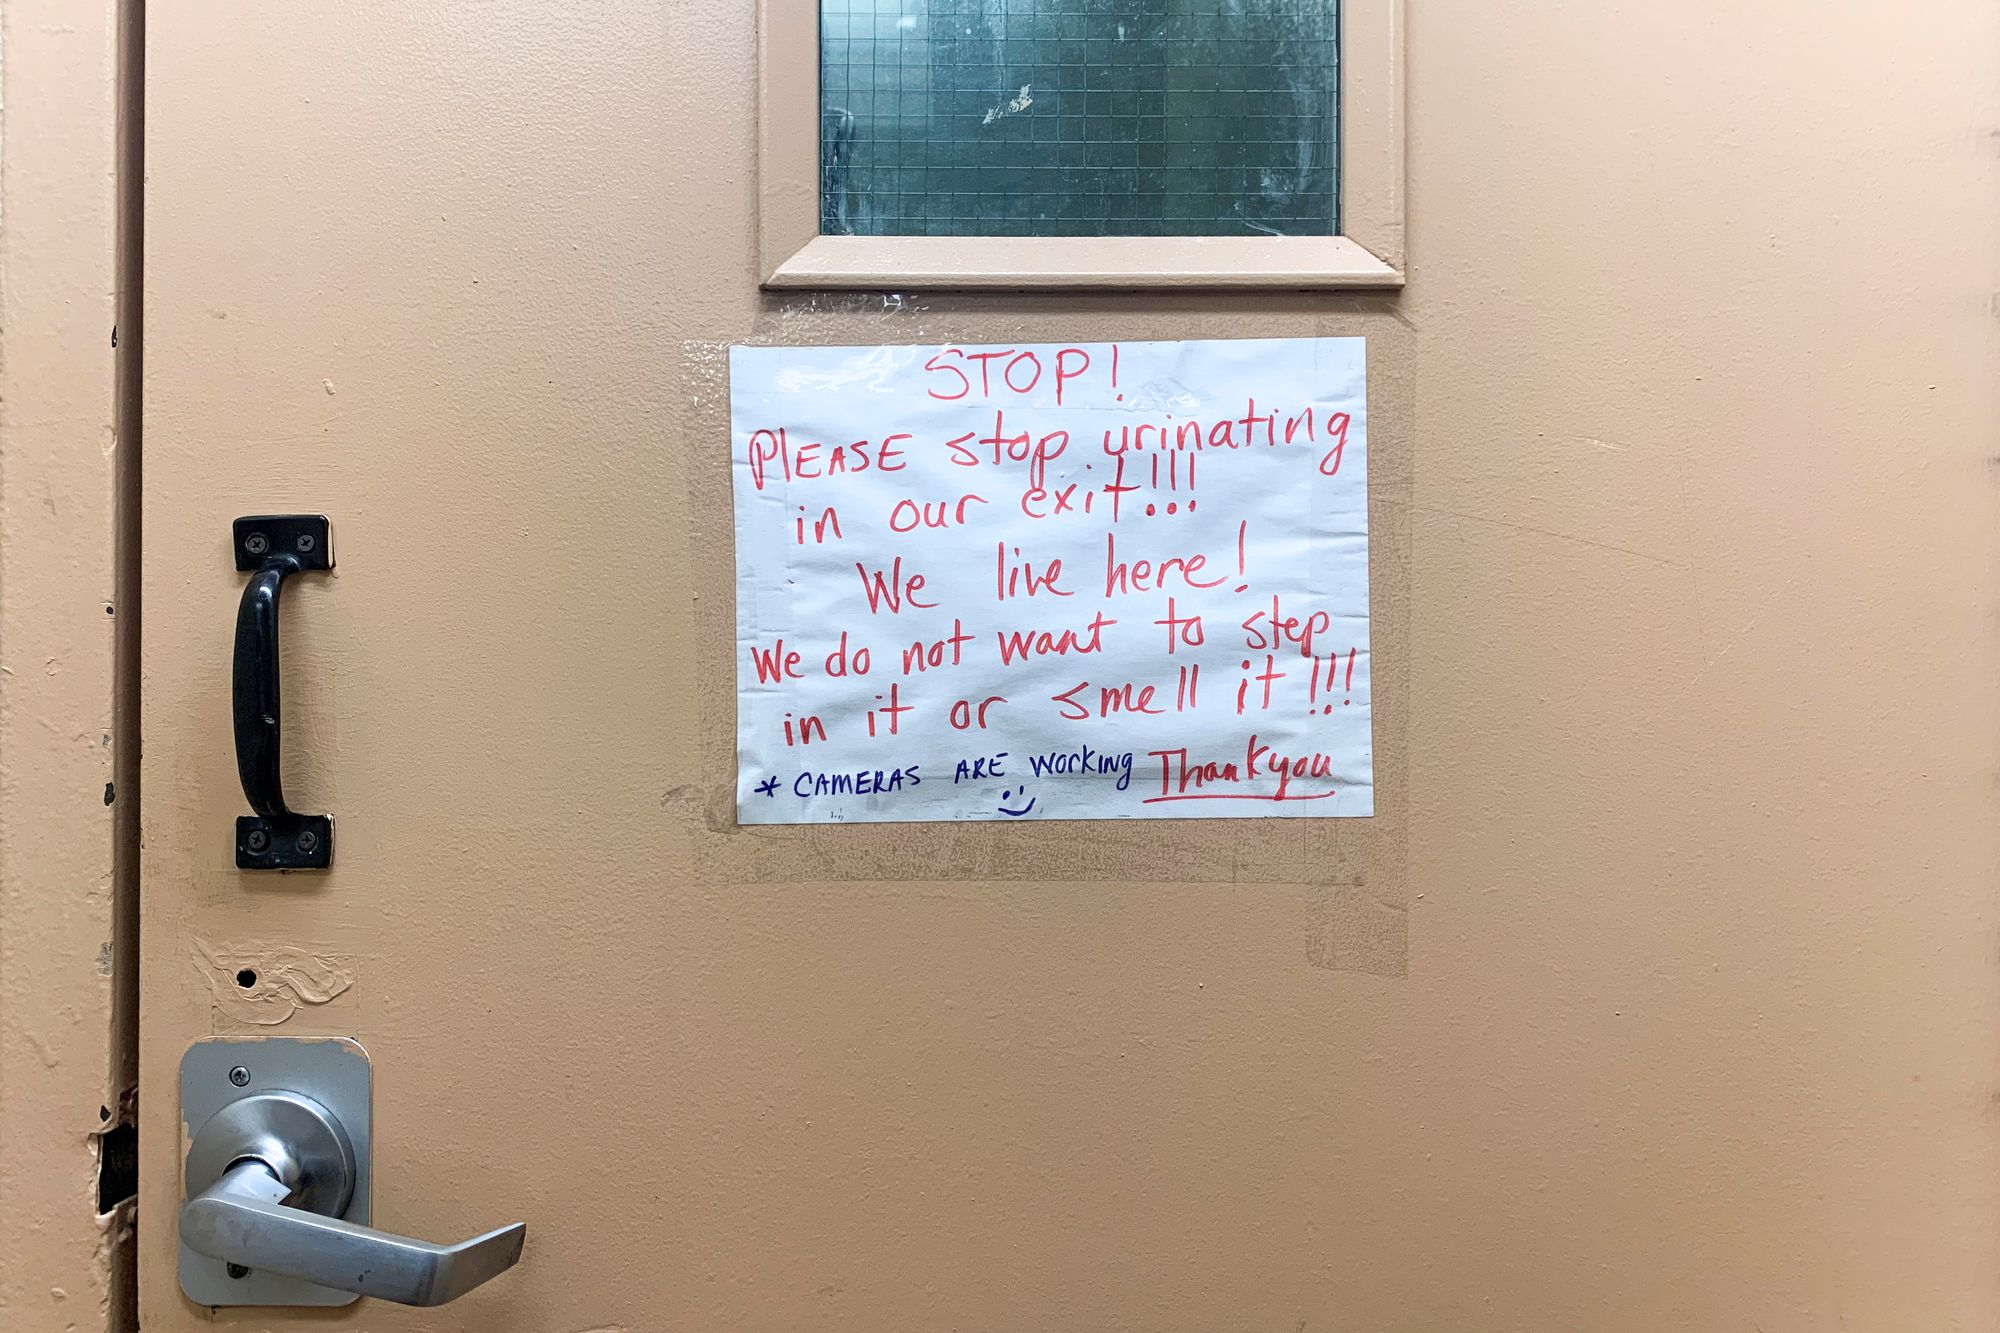 STOP!
PLEASE stop urinating
in our exit!!!!
We live here!
We do not want to step
in it or smell it!!!
* CAMERAS ARE WORKING Thank you